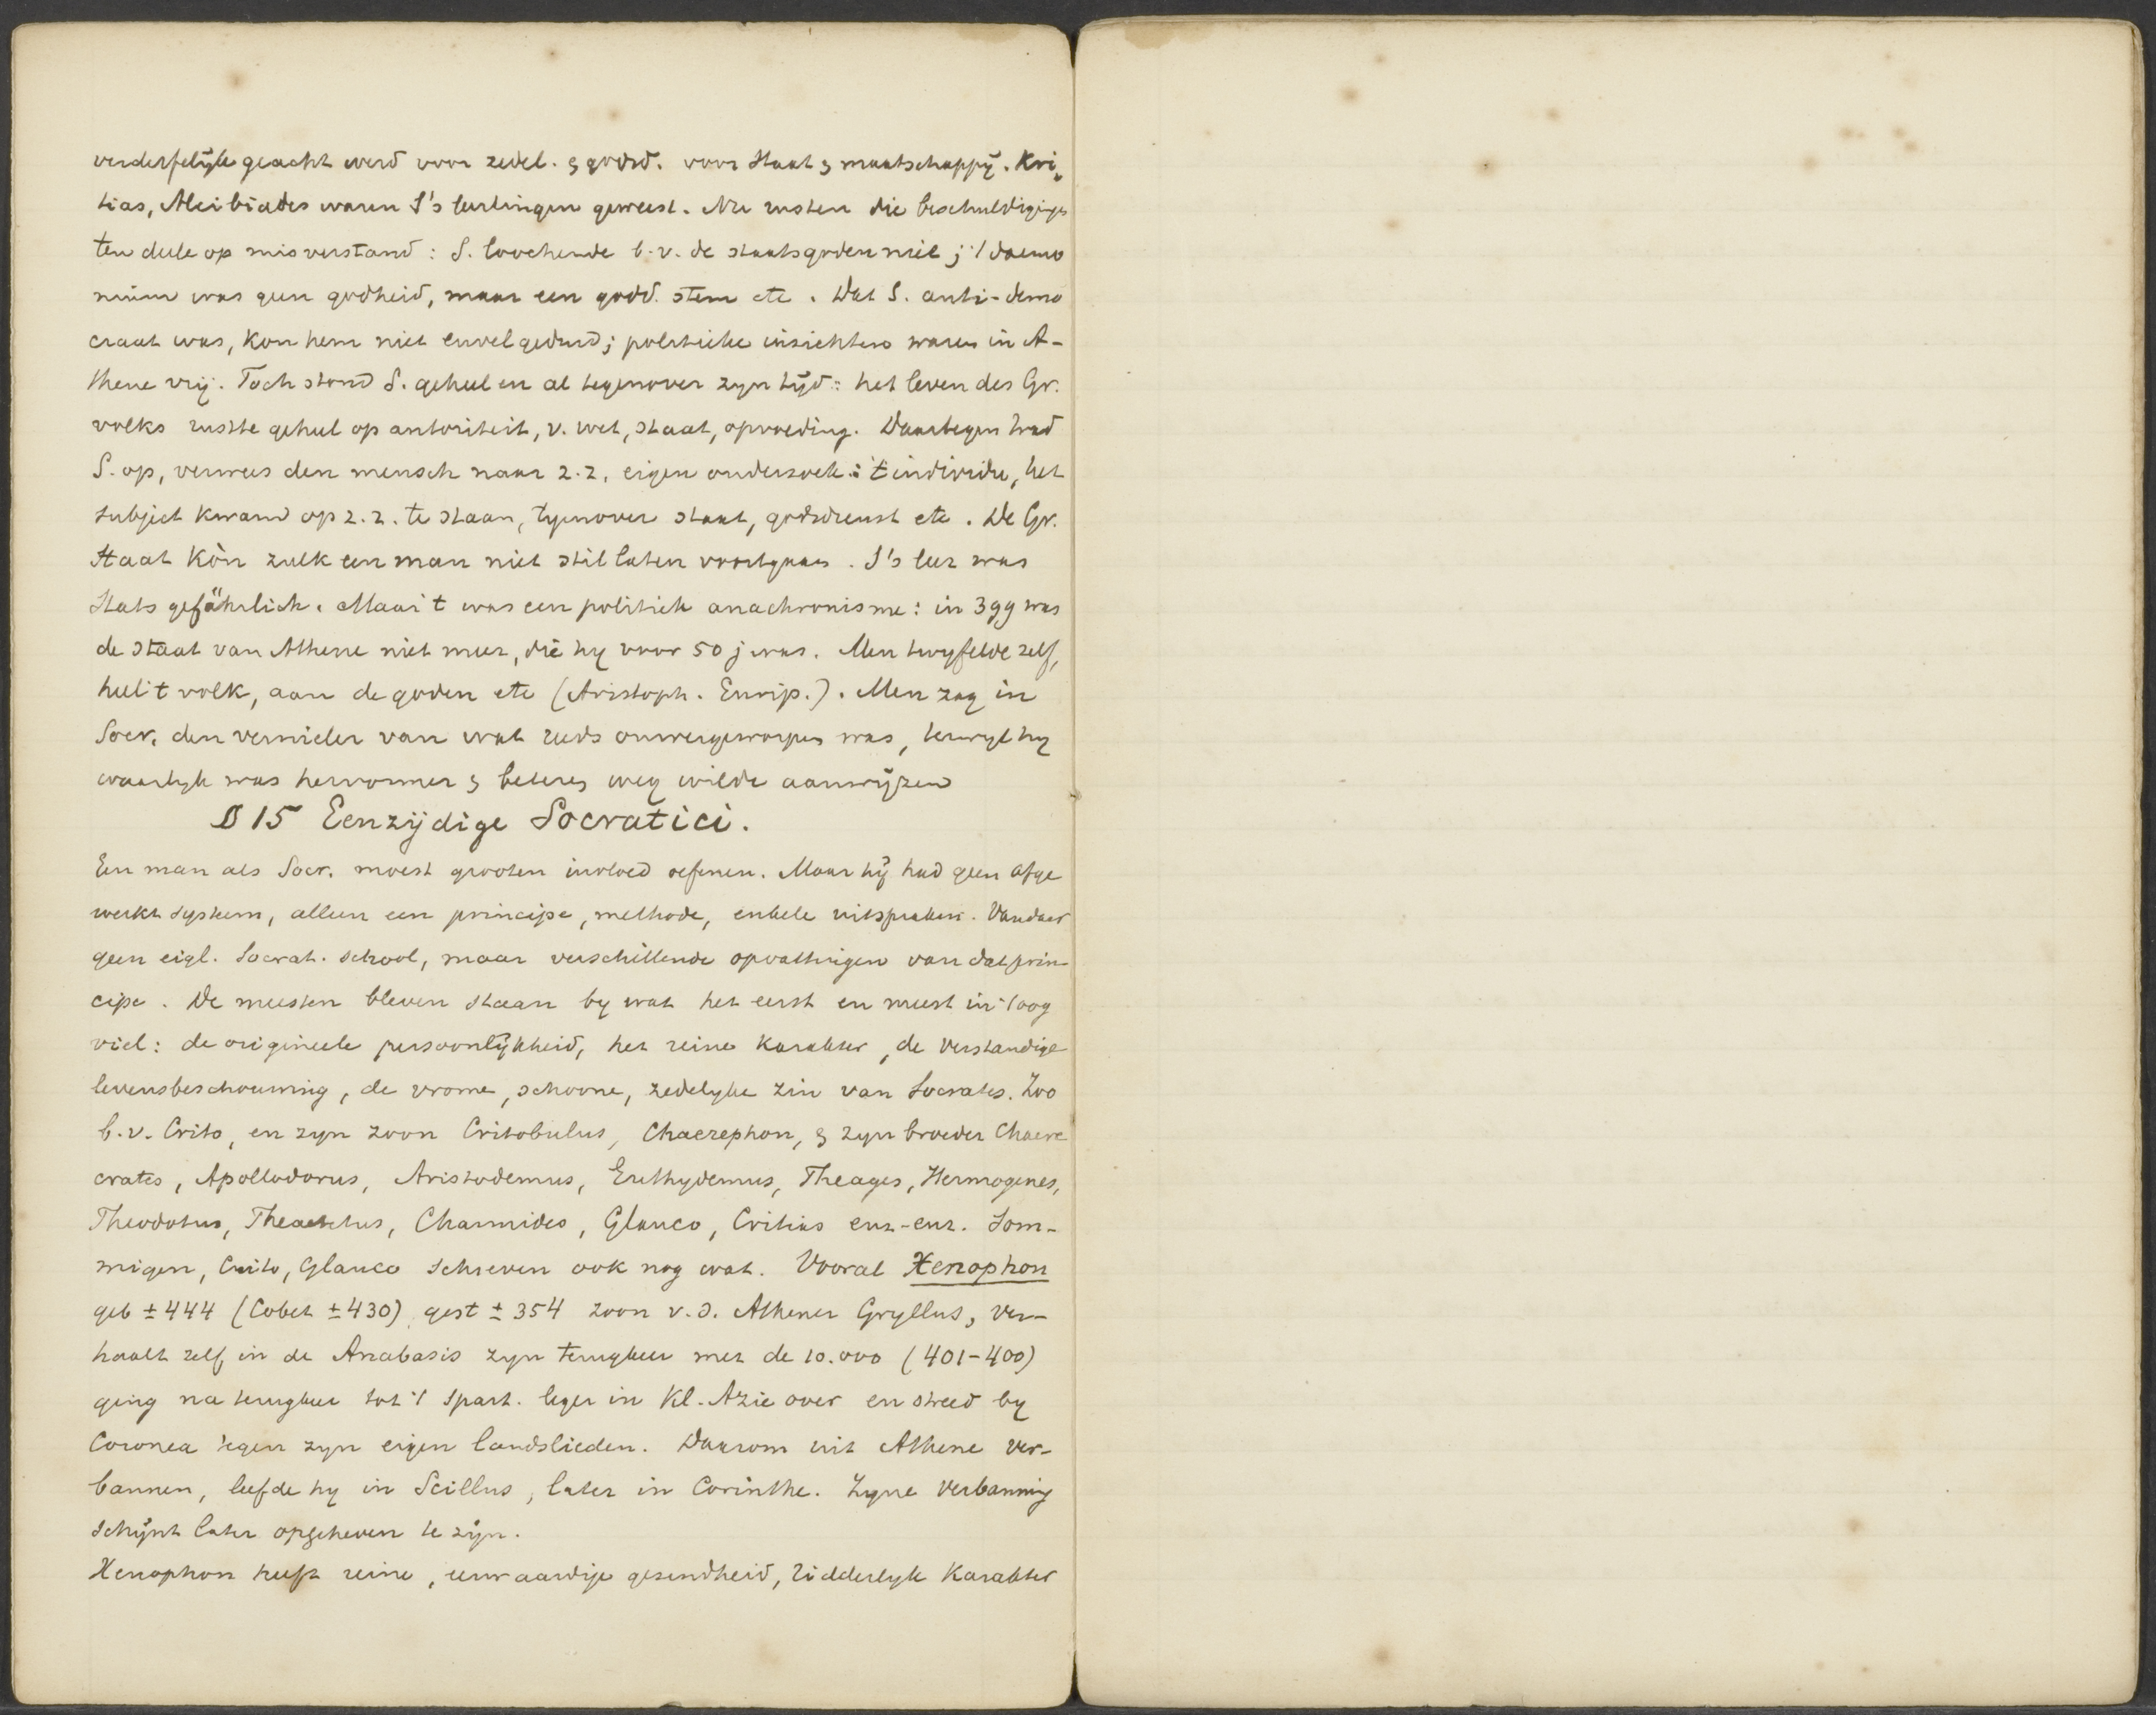 verderfelijk geacht werd voor zedel. & godsd. voor staat & maatschappij. Kri-
tias, Alcibiades waren S's leerlingen geweest. Nu rusten die beschuldigings
ten deele op misverstand: S. loochende b.v. de staatsgoden niet; 't daemo
nium was geen godheid, maar een godd. stem etc. Dat S. anti-demo
craat was, kon hem niet euvel geduid; politieke inzichten waren in A-
thene vrij. Toch stond S. geheel en al tegenover zyn tijd: het leven des Gr.
volks rustte geheel op autoriteit, v. wet, staat, opvoeding. Daartegen trad
S. op, verwees den mensch naar z.z. eigen onderzoek: 't individu, het
subject kwam op z.z. te staan, tegenover staat, godsdienst etc. De Gr.
Staat kòn zulk een man niet stil laten voortgaan. S's leer was
Stats gefährlich. Maar 't was een politiek anachronisme: in 399 was
de staat van Athene niet meer, die hy voor 50 j was. Men twyfelde zelf,
heel 't volk, aan de goden etc (Aristoph. Eurip.). Men zag in
Socr. den vernieler van wat reeds omvergeworpen was, terwyl hy
waarlyk was hervormer & beteren weg wilde aanwijzen
§ 15 Eenzijdige Socratici.
Een man als Socr. moest grooten invloed oefenen. Maar hij had geen afge
werkt systeem, alleen een principe, methode, enkele uitspraken. Vandaar
geen eigl. Socrat. school, maar verschillende opvattingen van dat prin-
cipe. De meesten bleven staan by wat het eerst en meest in 't oog
viel: de origineele persoonlijkheid, het reine karakter, de verstandige
levensbeschouwing, de vrome, schoone, zedelyke zin van Socrates. Zoo
b.v. Crito, en zyn zoon Critobulus, Chaerephon, & zyn broeder Chaere
crates, Apollodorus, Aristodemus, Euthydemus, Theages, Hermogenes,
Theodotus, Theaetetus, Charmides, Glauco, Critias enz-enz. Som-
migen, Crito, Glauco schreven ook nog wat. Vooral Xenophon
geb ± 444 (Cobet ± 430), gest ± 354 zoon v.d. Athener Gryllus, ver-
haalt zelf in de Anabasis zyn terugkeer met de 10.000 (401-400)
ging na terugkeer tot 't Spart. leger in Kl. Azie over en streed by
Coronea tegen zyn eigen landslieden. Daarom uit Athene ver-
bannen, leefde hy in Scillus, later in Corinthe. Zyne verbanning
schijnt later opgeheven te zijn.
Xenophon heeft reine, eenvaardige gezindheid, ridderlyk karakter